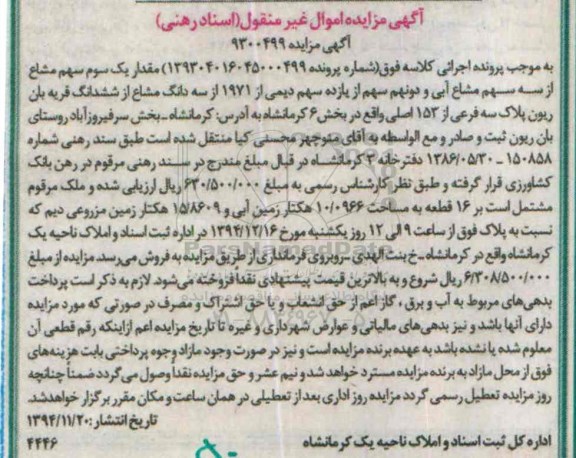 آگهی مزایده اموال غیر منقول(اسناد رهنی)
آگهی مزایده ۹۳۰۰۴۹۹
به موجب پرونده اجرائی کلاسه فوق(شماره پرونده ۱۳۹۳۰۴۰۱۶۰۴۵۰۰۰۴۹۹) مقدار یک سوم سهم مشاع
از سه سهم مشاع آبی و دونهم سهم از یازده سهم دیمی از ۱۹۷۱ از سه دانگ مشاع از ششدانگ قریه بان
ریون پلاک سه فرعی از ۱۵۳ اصلی واقع در بخش ۶ کرمانشاه به آدرس: کرمانشاه ـ بخش سرفیروزآباد روستای
بان ریون ثبت و صادر و مع الواسطه به آقای منوچهر محسنی کیا منتقل شده است طبق سند رهنی شماره
۱۵۰۸۵۸ ـ ۱۳۸۶/۰۵/۳۰ دفترخانه ۳ کرمانشاه در قبال مبلغ مندرج در سند رهنی مرقوم در رهن بانک
کشاورزی قرار گرفته و طبق نظر کارشناس رسمی به مبلغ ۶۳۰/۵۰۰/۰۰۰ ریال ارزیابی شده و ملک مرقوم
مشتمل است بر ۱۶ قطعه به مساحت ۱۰/۰۹۶۶ هکتار زمین آبی و ۱۵/۸۶۰۹ هکتار زمین مزروعی دیم که
نسبت به پلاک فوق از ساعت ۹ الی ۱۲ روز یکشنبه مورخ ۱۳۹۴/۱۲/۱۶ در اداره ثبت اسناد و املاک ناحیه یک
کرمانشاه واقع در کرمانشاه ـ خ بنت الهدی ـ روبروی فرمانداری از طریق مزایده به فروش می‌رسد. مزایده از مبلغ
۶/۳۰۸/۵۰۰/۰۰۰ ریال شروع و به بالاترین قیمت پیشنهادی نقدا فروخته می‌شود. لازم به ذکر است پرداخت
بدهی‌های مربوط به آب و برق ، گاز اعم از حق انشعاب و یا حق اشتراک و مصرف در صورتی که مورد مزایده
دارای آنها باشد و نیز بدهی‌های مالیاتی و عوارض شهرداری و غیره تا تاریخ مزایده اعم ازاینکه رقم قطعی آن
معلوم شده یا نشده باشد به عهده برنده مزایده است و نیز در صورت وجود مازاد وجوه پرداختی بابت هزینه‌های
فوق از محل مازاد به برنده مزایده مسترد خواهد شد و نیم عشر و حق مزایده نقداً وصول می‌گردد ضمناً چنانچه
روز مزایده تعطیل رسمی گردد مزایده روز اداری بعد از تعطیلی در همان ساعت و مکان مقرر برگزار خواهدشد.
تاریخ انتشار: ۱۳۹۴/۱۱/۲۰
اداره کل ثبت اسناد و املاک ناحیه یک کرمانشاه
۴۴۴۶
ParsNamadData